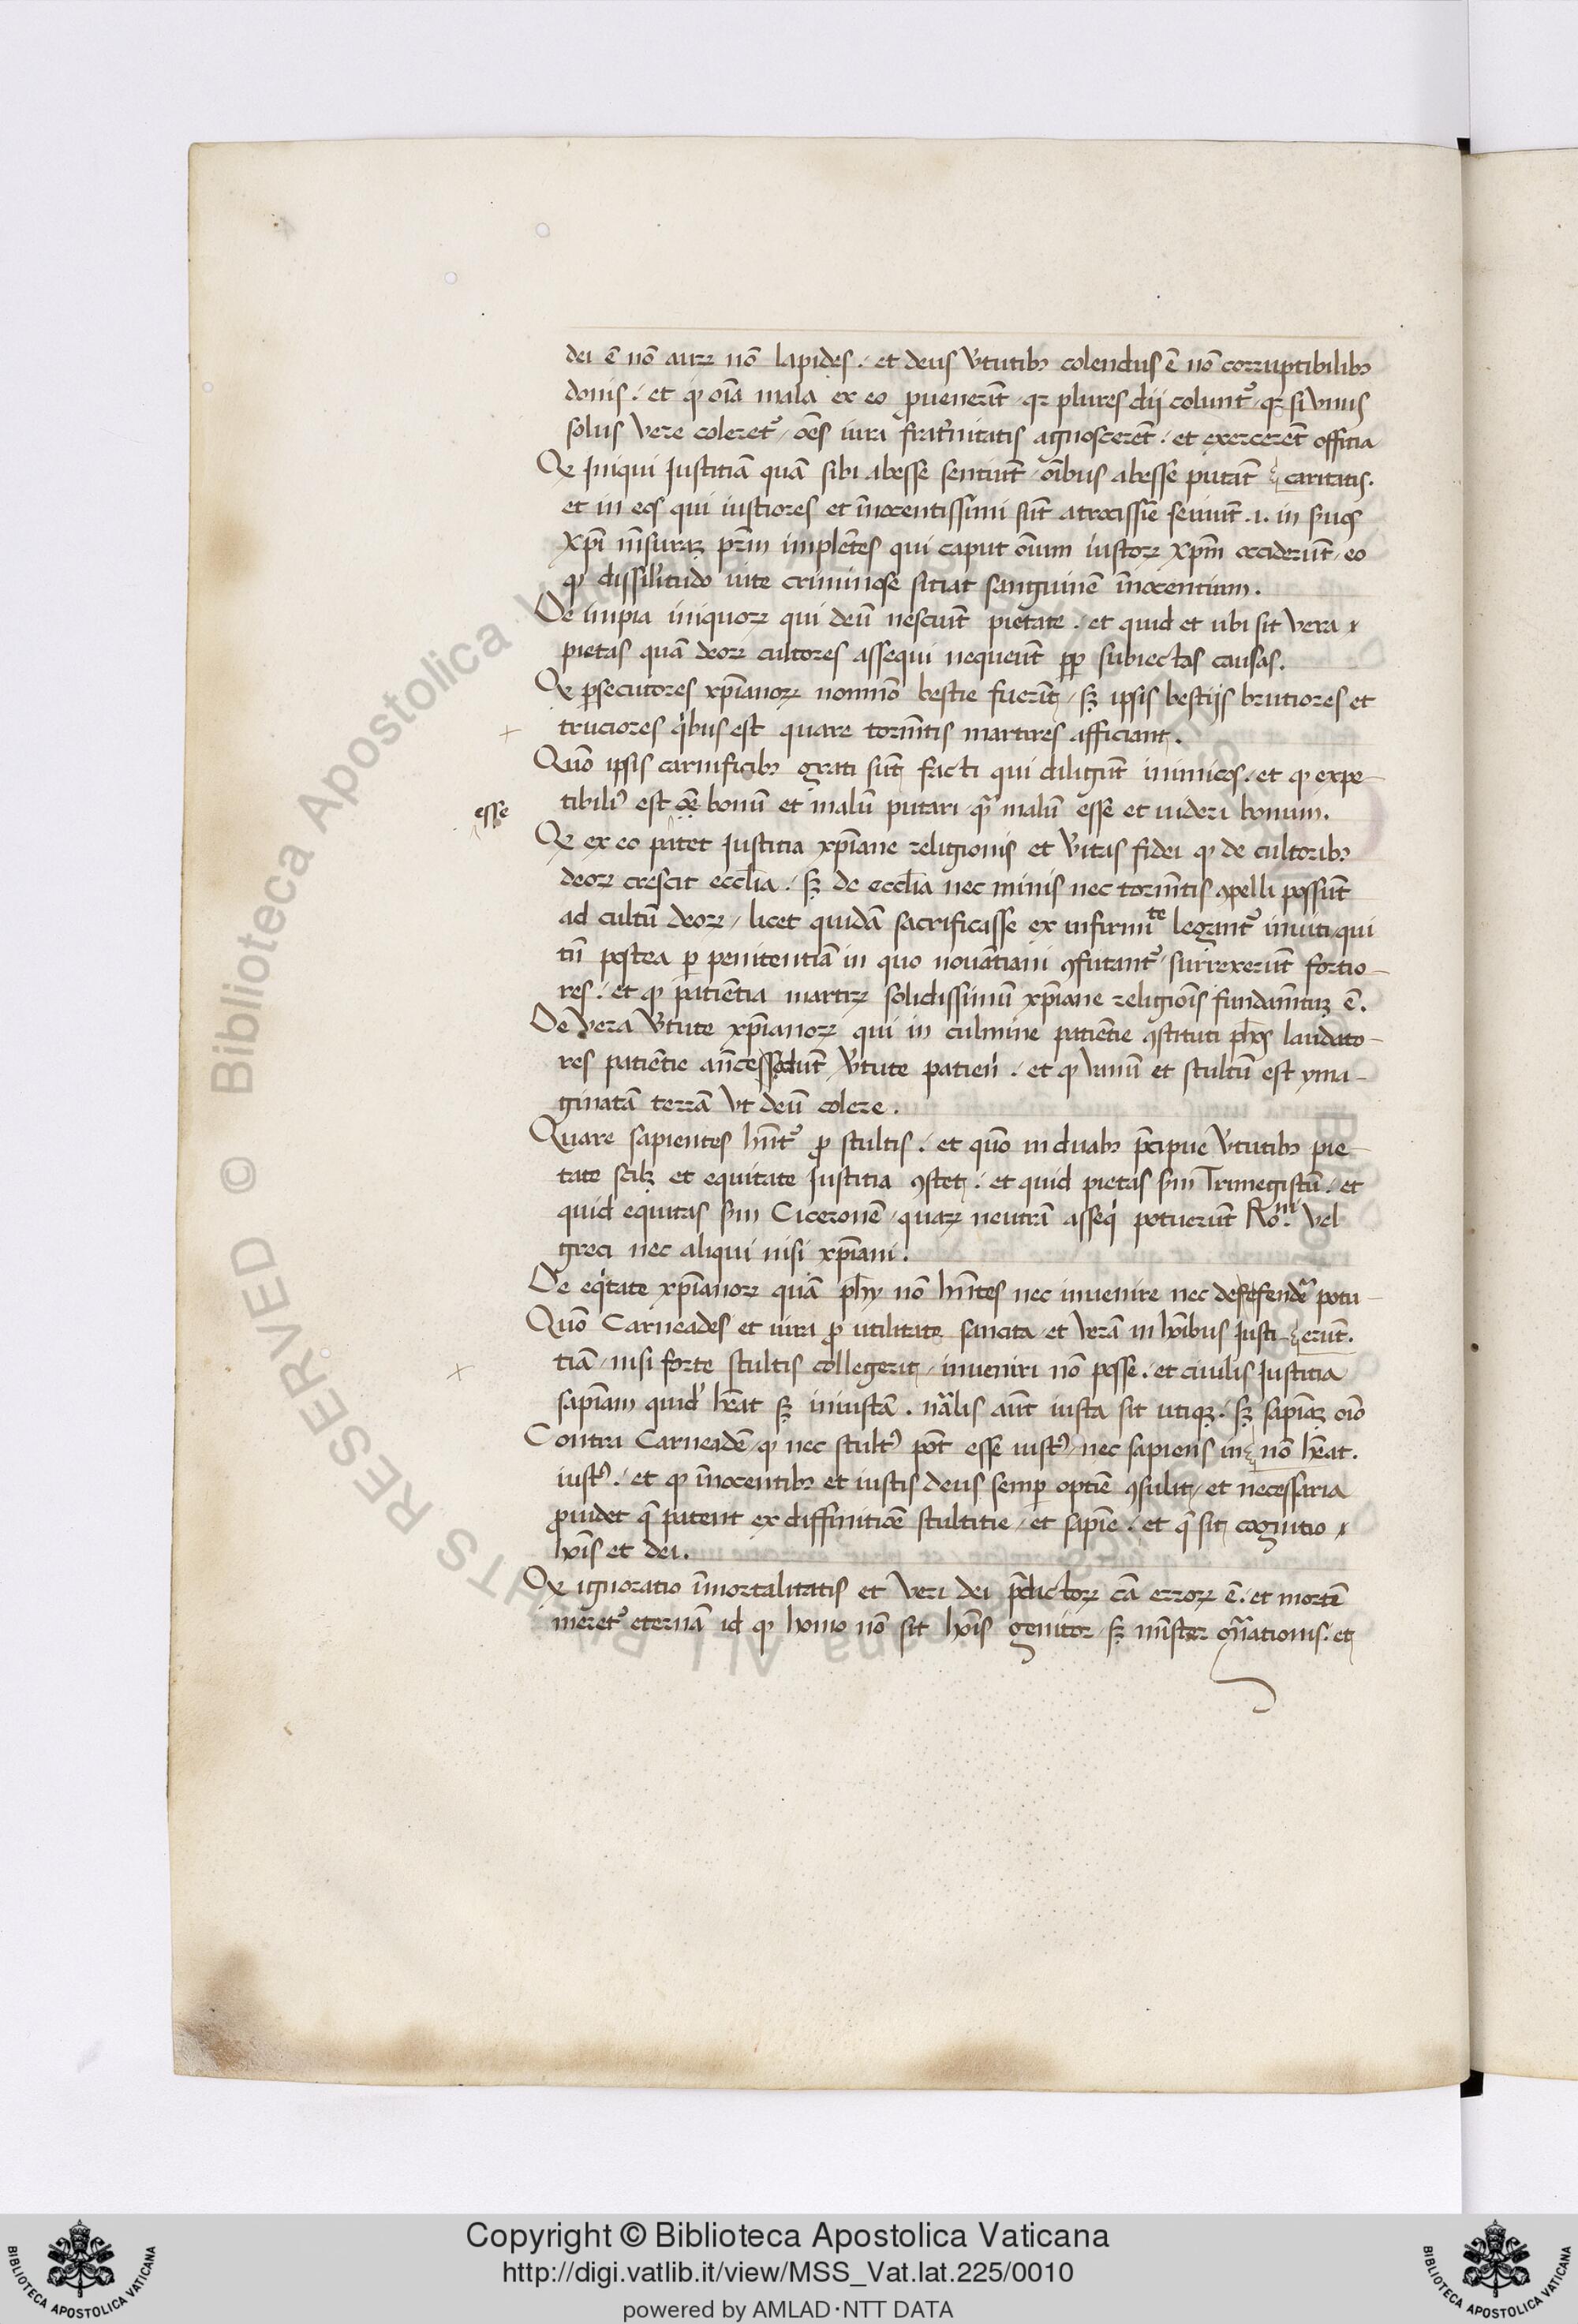 dei ē nō aurꝝ nō lapides. et deus v̓tutibꝫ colendus ē nō corruptibilibꝫ
donis. et ꝙ oīa mala ex eo ꝓuenerūt qꝛ plures dij colunt᷒ qꝛ si vnus
solus vere coleret᷒ / oēs iura frat̓nitatis agnoscerēt. et exercerēt officia
Qꝫ Iniqui Iusticiā quā sibi abesse sentiūt / oībus abesse putāt caritatis.
et in eos qui iustiores et īnocentissimi sūt atrocissīe seuiūt .i. in suos
xp̄i mēsuraꝫ pr̄m implētes qui caput oīum iustoꝝ xp̄m occiderūt / eo
ꝙ dissil̓itudo uite criminose sitiat sanguinē īnocentium.
De impia iniquoꝝ qui deū nesciūt pietate. et quid et ubi sit vera
pietas quā deoꝝ cultores assequi nequeūt ꝓp̄ subiectas causas.
Qꝫ ꝑsecutores xp̄ianoꝝ nonmō bestie fuerūt / sꝫ ipsis bestijs brutiores et
truciores q̓bus est quare tormētis martires afficiant.
Quō ipsis carnificibꝫ grati sūt facti qui diligūt inimicos. et ꝙ expe-
tibili᷒ est oē bonū et malū putari qͣ malū esse et uideri bonum.
esse
Qꝫ ex eo patet Iusticia xp̄iane religionis et v̓itas fidei ꝙ de cultoribꝫ
deoꝝ crescit eccl̄ia. sꝫ de eccl̄ia nec minis nec tormētis apelli possūt
ad cultū deoꝝ / licet quidā sacrificasse ex infirmiᵗᵉ legant᷒ inuiti qui
tn̄ postea ꝑ penitentiā in quo nouatiani ꝯfutant᷒ / surrexerūt fortio-
res. et ꝙ patiētia martiꝝ solidissimū xp̄iane religiōis fundamētuꝫ ē.
De vera v̓tute xp̄ianoꝝ qui in culmine patiētie ꝯstituti ph̄os laudato-
res patiētie v̓tute patien̄. et ꝙ vanū et stultū est yma-
ginatā terrā vt deū colere.
Quare sapientes hn̄t᷒ ꝓ stultis. et quō in duabꝫ p̄cipue v̓tutibꝫ pie-
tate scilꝫ et equitate Iusticia ꝯstet. et quid pietas sm̄ Trimegistū. et
quid equitas sm̄ Ciceronē / quaꝝ neutrā asseq̓ potuerūt Ro.ⁿⁱ vel
greci nec aliqui nisi xp̄iani.
De eq̓tate xp̄ianoꝝ quā ph̄y nō hn̄tes nec inuenire nec defefendͬe potu-
Quō Carneades et iura ꝓ utilitate sancita / et verā in hōibus Iusti- erūt.
tiā / nisi forte stultis collegerit / inueniri nō posse. et ciuilis Iusticia
sapīam quid̓ hēat sꝫ iniustā. nālis aūt iusta sit utiqꝫ. sꝫ sapīaꝫ oīo
Contra Carneadē / ꝙ nec stult᷒ pōt esse iust᷒ / nec sapiens in nō hēat.
iust᷒. et ꝙ īnocentibꝫ et iustis deus semꝑ optīe ꝯsulit / et necessaria
ꝓuidet q̄ patent ex diffinitiōe stultitie / et sapīe. et q̄ sit cognitio
hōis et dei.
Qꝫ ignoratio īmortalitatis et veri dei p̄dictoꝝ cā erroꝝ ē. et mortē
meret᷒ eternā id ꝙ homo nō sit hōis genitor sꝫ mīster gn̄ationis. et
Copyright © Biblioteca Apostolica Vaticana
http://digi.vatlib.it/view/MSS_Vat.lat.225/0010
powered by AMLAD·NTT DATA